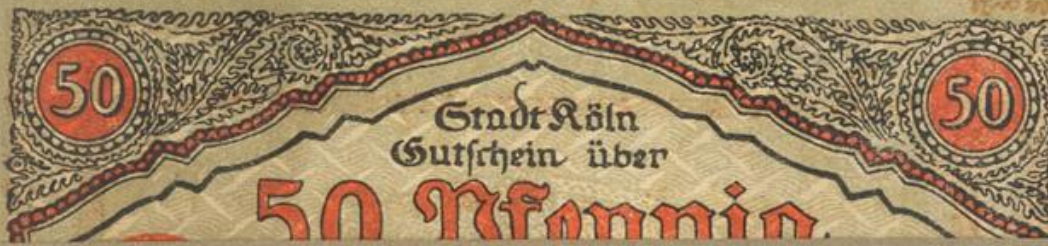 50 50
Stadt Köln
Gutschein über
50 Pfennig.